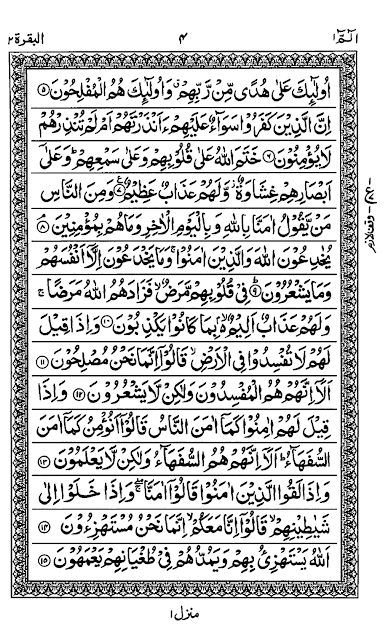 الٓمّٓ ١ ٤ البقرة ٢
اُولٰٓئِكَ عَلٰى هُدًى مِّنْ رَّبِّهِمْ ۙ وَاُولٰٓئِكَ هُمُ الْمُفْلِحُوْنَ ۝٥
اِنَّ الَّذِيْنَ كَفَرُوْا سَوَآءٌ عَلَيْهِمْ ءَاَنْذَرْتَهُمْ اَمْ لَمْ تُنْذِرْهُمْ
لَا يُؤْمِنُوْنَ ۝٦ خَتَمَ اللّٰهُ عَلٰى قُلُوْبِهِمْ وَعَلٰى سَمْعِهِمْ ؕ وَعَلٰٓى
اَبْصَارِهِمْ غِشَاوَةٌ ؗ وَّلَهُمْ عَذَابٌ عَظِيْمٌ ۝٧ وَمِنَ النَّاسِ
مَنْ يَّقُوْلُ اٰمَنَّا بِاللّٰهِ وَبِالْيَوْمِ الْاٰخِرِ وَمَا هُمْ بِمُؤْمِنِيْنَ ۝٨
يُخٰدِعُوْنَ اللّٰهَ وَالَّذِيْنَ اٰمَنُوْا ۚ وَمَا يَخْدَعُوْنَ اِلَّآ اَنْفُسَهُمْ
وَمَا يَشْعُرُوْنَ ۝٩ فِيْ قُلُوْبِهِمْ مَّرَضٌ ۙ فَزَادَهُمُ اللّٰهُ مَرَضًا ۚ
وَلَهُمْ عَذَابٌ اَلِيْمٌۢ ۙ بِمَا كَانُوْا يَكْذِبُوْنَ ۝١٠ وَاِذَا قِيْلَ
لَهُمْ لَا تُفْسِدُوْا فِي الْاَرْضِ ۙ قَالُوْٓا اِنَّمَا نَحْنُ مُصْلِحُوْنَ ۝١١
اَلَآ اِنَّهُمْ هُمُ الْمُفْسِدُوْنَ وَلٰكِنْ لَّا يَشْعُرُوْنَ ۝١٢ وَاِذَا
قِيْلَ لَهُمْ اٰمِنُوْا كَمَآ اٰمَنَ النَّاسُ قَالُوْٓا اَنُؤْمِنُ كَمَآ اٰمَنَ
السُّفَهَآءُ ؕ اَلَآ اِنَّهُمْ هُمُ السُّفَهَآءُ وَلٰكِنْ لَّا يَعْلَمُوْنَ ۝١٣
وَاِذَا لَقُوا الَّذِيْنَ اٰمَنُوْا قَالُوْٓا اٰمَنَّا ۖۚ وَاِذَا خَلَوْا اِلٰى
شَيٰطِيْنِهِمْ ۙ قَالُوْٓا اِنَّا مَعَكُمْ ۙ اِنَّمَا نَحْنُ مُسْتَهْزِءُوْنَ ۝١٤
اَللّٰهُ يَسْتَهْزِئُ بِهِمْ وَيَمُدُّهُمْ فِيْ طُغْيَانِهِمْ يَعْمَهُوْنَ ۝١٥
منزل ١